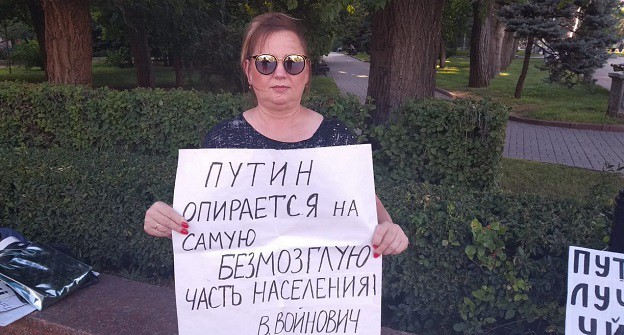 ПУТИН
ОПИРАЕТСЯ НА
САМУЮ
БЕЗМОЗГЛУЮ
ЧАСТЬ НАСЕЛЕНИЯ!
В. ВОЙНОВИЧ